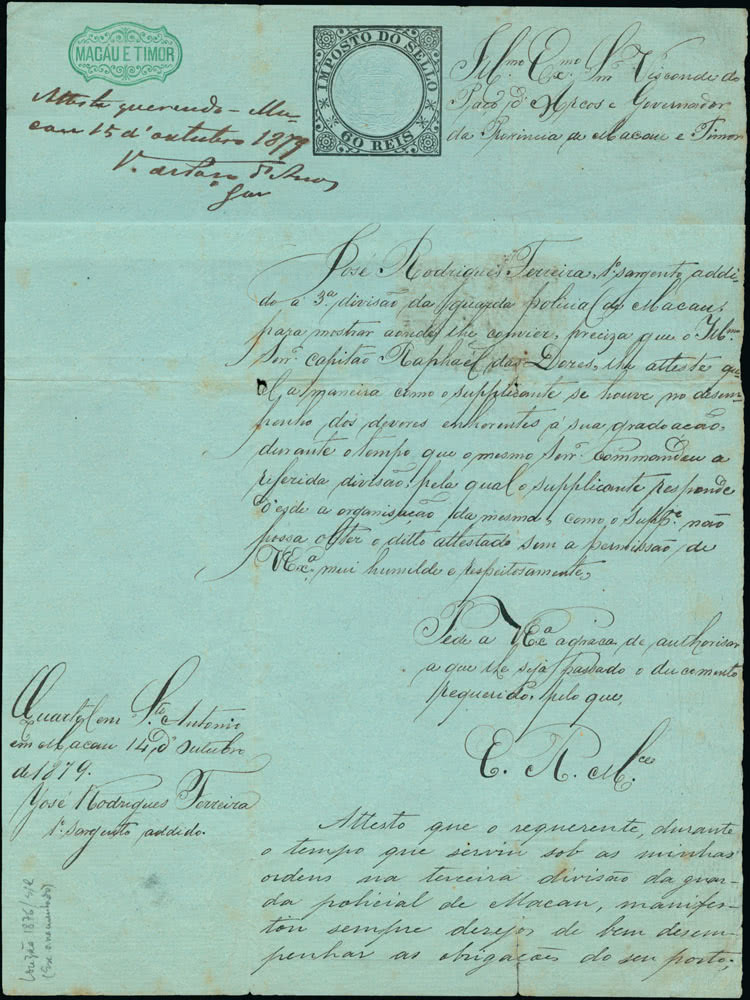 MACAU E TIMOR
IMPOSTO DO SELLO
60 REIS
Illmo. Exmo. Snr. Visconde do
Paço d'Arcos e Governador
da Provincia de Macau e Timor
Atteste querendo - Ma-
cau 15 d'outubro 1879
V. de Paço d'Arcos
Gov
José Rodrigues Ferreira, 1º sargento addi-
do á 3.ª divisão da guarda policial de Macau,
para mostrar aonde lhe convier, preciza que o Illmo.
Senr. capitão Raphael das Dores, lhe atteste qu-
al, a maneira como o supplicante se houve no desem-
penho dos deveres enherentes á sua graduação,
durante o tempo que o mesmo Senr. Commandou a
referida divisão, pela qual o supplicante responde
desde a organisação da mesma, como o Suppte. não
possa obter o ditto attestado sem a permissão de
V Exc.ª mui humilde e respeitosamente,
Pede a V Exc.ª a graça de authorisar
a que lhe seja passado o ducumento
requerido, pelo que,
E. R. M.ce
Quartel em Sto. Antonio
em Macau 14 d'Outubro
de 1879.
José Rodrigues Ferreira
1º sargento addido.
Attesto que o requerente, durante
o tempo que serviu sob as minhas
ordens na terceira divisão da guar-
da policial de Macau, manifes-
tou sempre desejos de bem desem-
penhar as obrigações do seu posto;
1876/